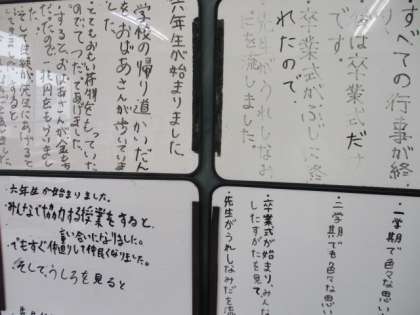 すべての行事が終
今は卒業式だけ
です。
・卒業式がぶじに終
れたので、
・先生がうれしなみ
だを流しました。
六年生が始まりました。
学校の帰り道かいだん
をおばあさんが歩いていま
・とてもおもい荷物をもっていた
のでてつだってあげました。
・するとおばあさんが金
だったので一兆円をもらいまし
一学期で色々な思い
二学期でも色々な思い
・卒業式が始まり、みんな
したすがたを見て
・先生がうれしなみだを流
・六年生が始まりました。
みんなで協力する授業をすると、
言い合いになりました。
・でもすぐ仲直りして仲良くなりました。
そして、うしろを見ると